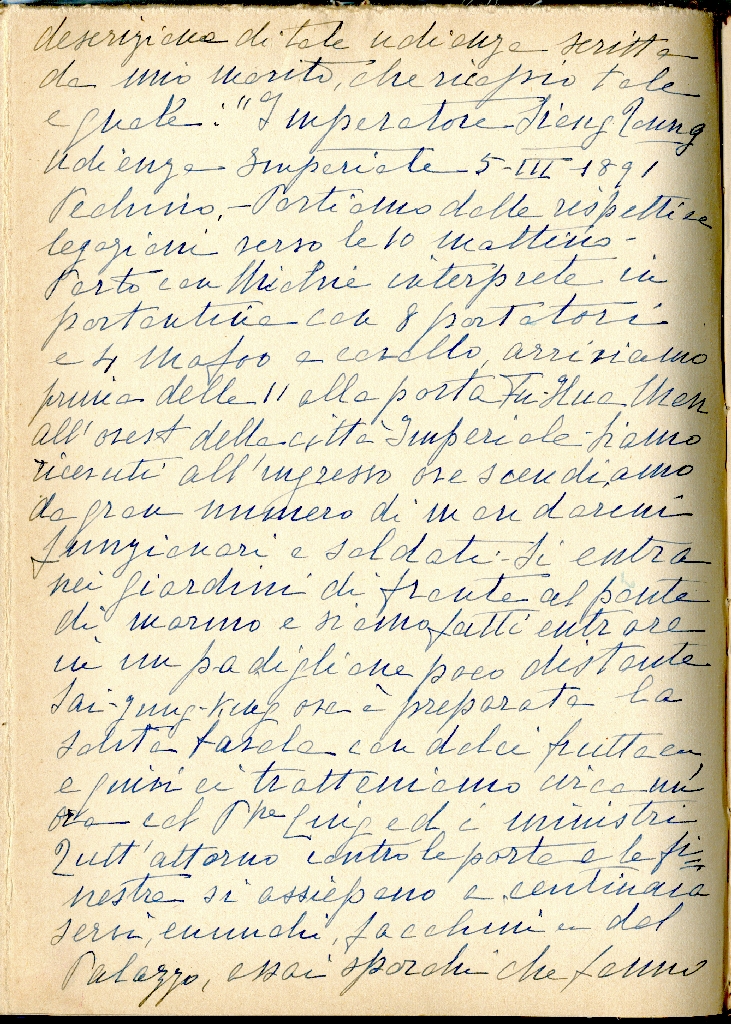 descrizione di tale udienza scritta
da mio marito, che ricopio tale
e quale: "Imperatore
udienza Imperiale 5-III-1891
Pechino,- Partiamo dalle rispettive
legazioni verso le 10 mattino-
Parto con interprete in
portantina con 8 portatori
e 4 mafoo a cavallo, arriviamo
prima delle 11 alla porta Fu-Hua Men
all'ovest della città Imperiale-Siamo
ricevuti all'ingresso ove scendiamo
da gran numero di mandarini
funzionari e soldati-Si entra
nei giardini di fronte al ponte
di marmo e siamo fatti entrare
in un padiglione poco distante
ove è preparata la
solita tavola con dolci frutta
e quivi ci tratteniamo circa un'
ora col Pce ed i ministri
Tutt'attorno contro le porte e le fi=
nestre si assiepano a centinaia
servi, eunuchi, facchini del
Palazzo, assai sporchi che fanno